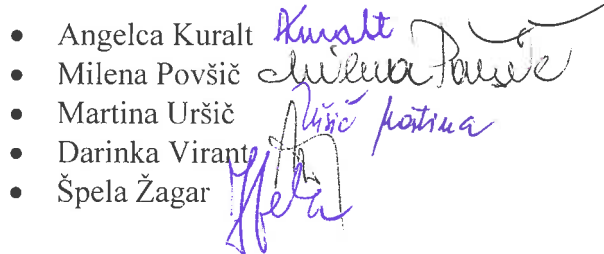 • Angelca Kuralt Kuralt
• Milena Povšič Milena Povšič
• Martina Uršič Uršič Martina
• Darinka Virant
• Špela Žagar